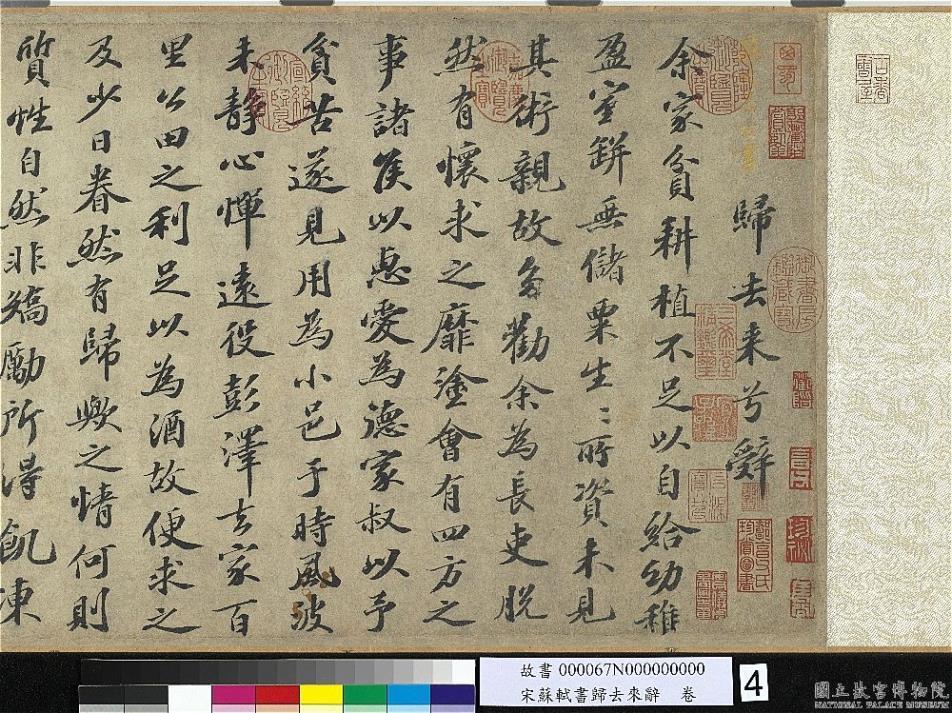 歸去来兮辭
余家貧耕植不足以自給幼稚
盈室缾無儲粟生〻所資未見
其術親故多勸余為長吏脫
然有懷求之靡塗會有四方之
事諸侯以惠愛為德家叔以予
貧苦遂見用為小邑于時風波
未静心憚遠役彭澤去家百
里公田之利足以為酒故便求之
及少日眷然有歸歟之情何則
質性自然非矯勵所得飢凍
故書 000067N000000000
宋蘇軾書歸去來辭 卷
4
國立故宮博物院
NATIONAL PALACE MUSEUM